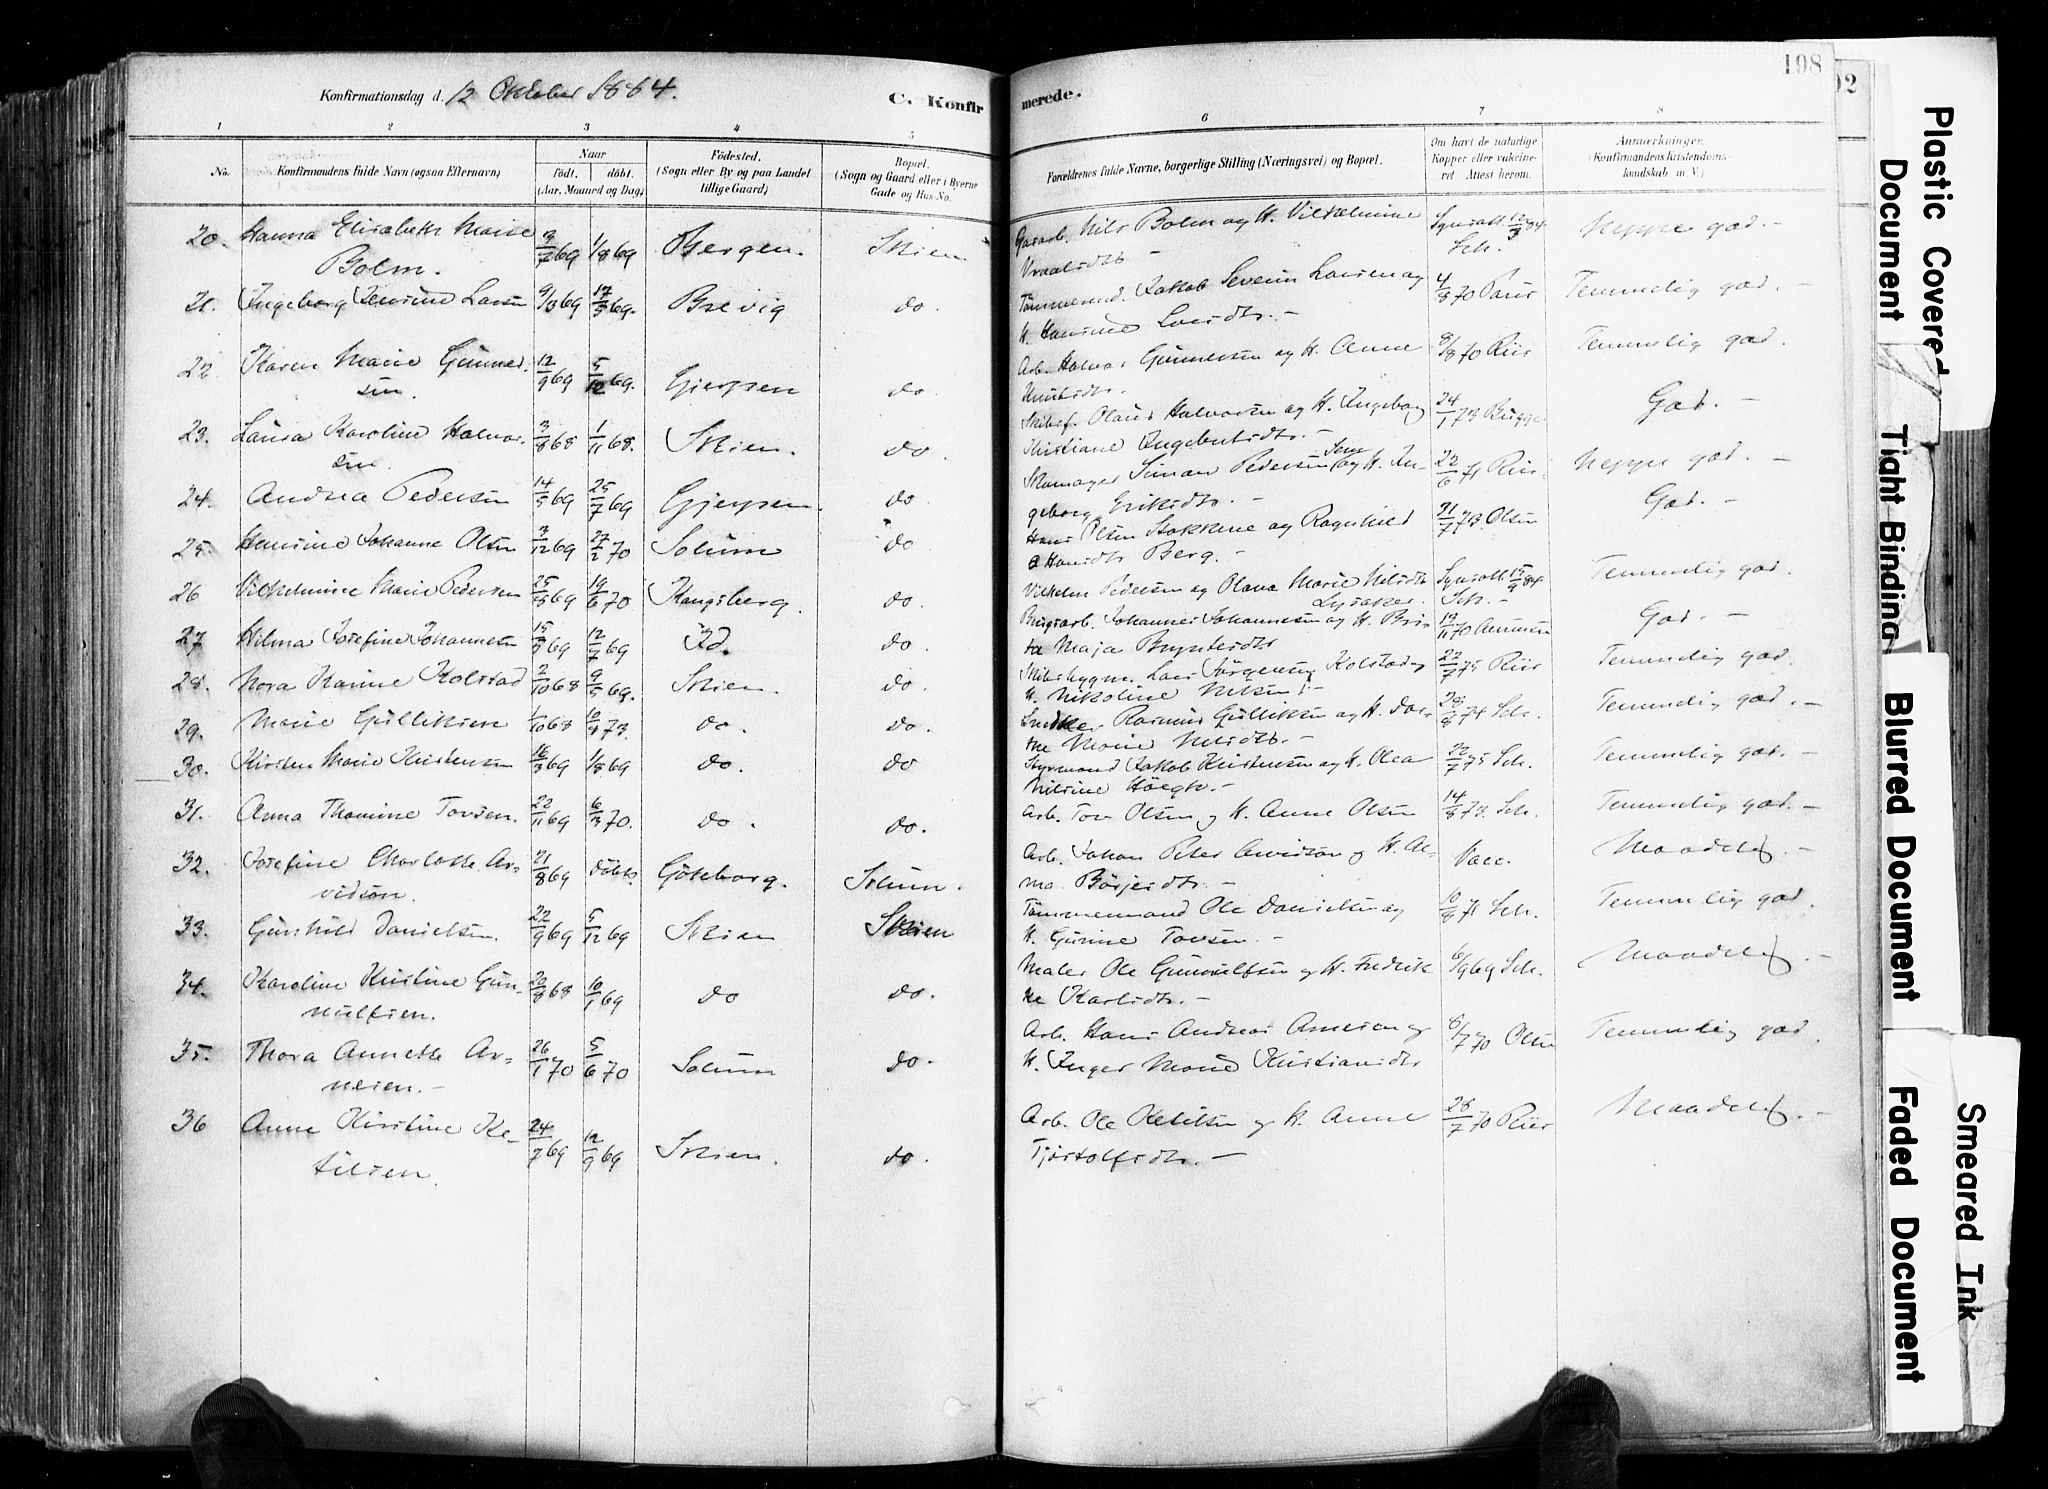 Konfirmationsdag d. 12 Oktober 1884.
C. Konfir
merede.
198
92
1 2 3 4 5 6 7 8
No.
Konfirmandens fulde Navn (ogsaa Efternavn)
Naar
født. døbt.
(Aar, Maaned og Dag)
Fødested.
(Sogn eller By og paa Landet
tillige Gaard)
Bopæl.
(Sogn og Gaard eller i Byerne
Gade og Hus-No.
Forældrenes fulde Navne, borgerlige Stilling (Næringsvei) og Bopæl.
Om havt de naturlige
Kopper eller vakcine-
ret Attest herom.
Anmærkninger.
(Konfirmandens Kristendoms-
kundskab m. V.)
20. Hanna Elisabeth Marie
Bolm. 9/7 69 1/8 69 Bergen. Skien
Nils Bolm og H. Vilhelmine
12/3 84 Sch. Neppe god. -
21. Ingeborg Jensine Larsen 9/3 69 17/5 69. Brevig do.
Tømmermd. Jakob Severin Larsen og
H. Hansine Larsdtr. - 4/8 70 Temmelig god. -
22. Karen Marie Gunner-
sen. 12/9 69 5/12 69. Gjerpen do.
Arb. Halvor Gunnersen og H. Anne
Knutsdtr. 8/8 70 Riis Temmelig god.
23. Laura Karoline Halvor-
sen. 3/8 68 1/11 68. Skien. do.
Skibsf. Olaus Halvorsen og H. Ingeborg
Kristiane Ingebretsdtr. - 24/1 73 Brügge God. -
24. Andrea Pedersen 14/5 69 25/7 69 Gjerpen. do
Skomager Simon Pedersen og H. In-
geborg Eriksdtr. - 22/6 71 Riis. Neppe god. -
25. Hansine Johanne Olsen 3/12 69 27/2 70 Solum do
Hans Olsen Stokkene og Ragnhild
Hansdtr Berg. - 21/7 73. Olsen God. -
26 Vilhelmine Marie Pedersen 25/8 69 19/6 70 Kongsberg. do.
Vilhelm Pedersen og Olava Marie Nilsdtr
Lysaker. 15/9 84 Sch. - Temmelig god.
27. Hilma Josefine Johannesen 15/5 69 12/7 69 Id. do.
Johannes Johannesen og H. Bri-
ta Maja 19/11 70 God. -
28. Nora Karine Kolstad 2/10 68 9/5 69. Skien. do.
Skibsbygm. Lars Jørgensen Kolstad og
H. Nikoline Nilsen. - 22/7 75 Riis Temmelig god.
29. Marie Gulliksen 1/10 68 10/8 73. do. do.
Snedker Rasmus Gulliksen og H. Dor-
the Marie Nilsdtr. - 28/8 74 Sch. Temmelig god. -
30. Kirsten Marie Kristensen 16/3 69 1/8 69 do. do
Styrmand Jakob Kristensen og H. Olea
Nilsine Höegh. - 22/7 75 Sch. Temmelig god. -
31. Anna Thomine Torsen. 22/11 69 6/3 70. do. do.
Arb. Tov Olsen og H. Anne Olsen 14/8 73. Sch. Temmelig god. -
32. Josefine Charlotte Ar-
vidson. 21/8 69 døbt. Göteborg. Solum.
Arb. Johan Peter Arvidson og H. Al-
ma Börjesdtr. - Vacc. Maadelig. -
33. Gunhild Danielsen. 22/9 69 5/12 69 Skien Skien
Tømmermand Ole Danielsen og
H. Gurine Tovsen. - 10/8 71 Sch. Temmelig god.
34. Karoline Kristine Gun-
nulfsen. 20/8 68 10/1 69 do do.
Maler Ole Gunnulfsen og H. Fredrik-
ke Karlsdtr. - 6/9 69 Sch. Maadelig. -
35. Thora Annette Ar-
nesen. - 26/1 70 5/6 70 Solum do.
Arb. Hans Andreas Arnesen og
H. Inger Marie Kristiansdtr 8/7 70 Olsen Temmelig god.
36 Anne Kirstine Ke-
tilsen. 24/7 69 12/9 69 Skien. do.
Arb. Ole Ketilsen og H. Anne
Tjøstolfsdtr. - 28/7 70 Riis Maadelig. -
Plastic Covered
Document
Tight Binding
Blurred Document
Faded Document
Smeared Ink